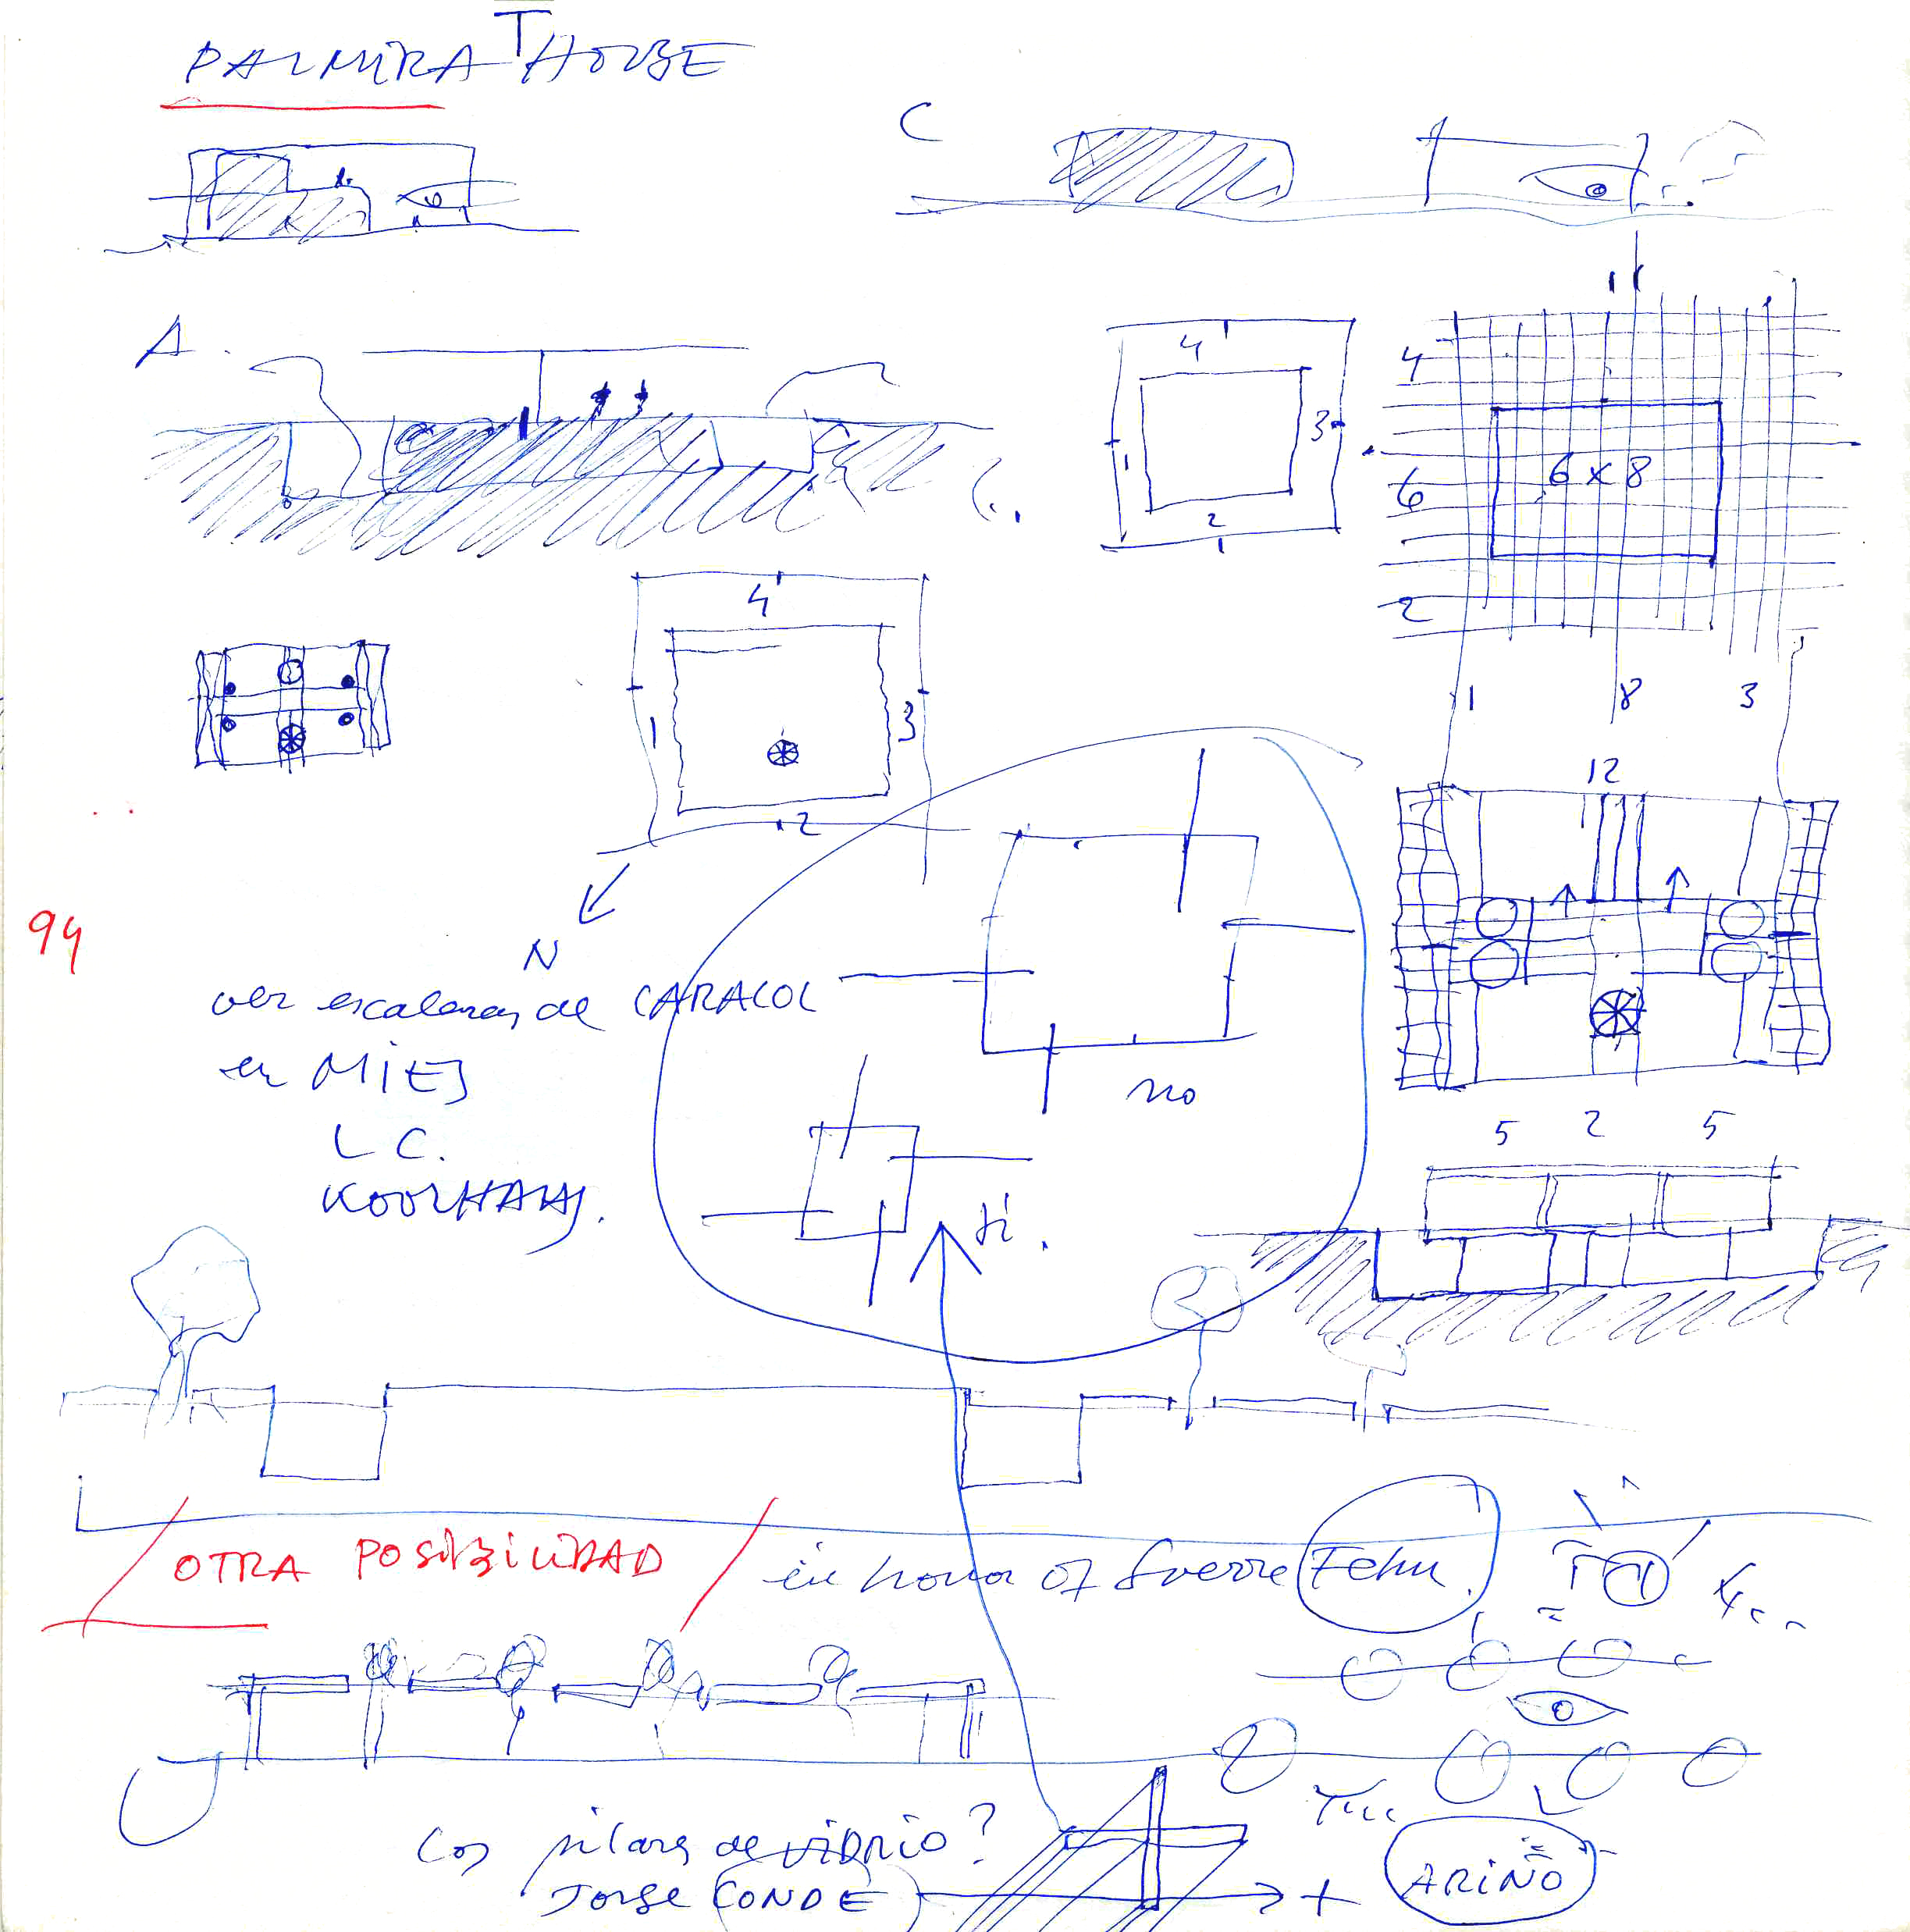 PALMIRA HOUSE
T
C
A.
4
3
1
2
4
6
2
6 x 8
1 8 3
4
1
3
2
12
94
N
ver escaleras de CARACOL
en MIES
L C.
KOOLHAAS.
no
si.
5 2 5
OTRA POSIBILIDAD
in honor of Sverre Fehn.
Los pilares de VIDRIO?
JORGE CONDE
+
ARIÑO